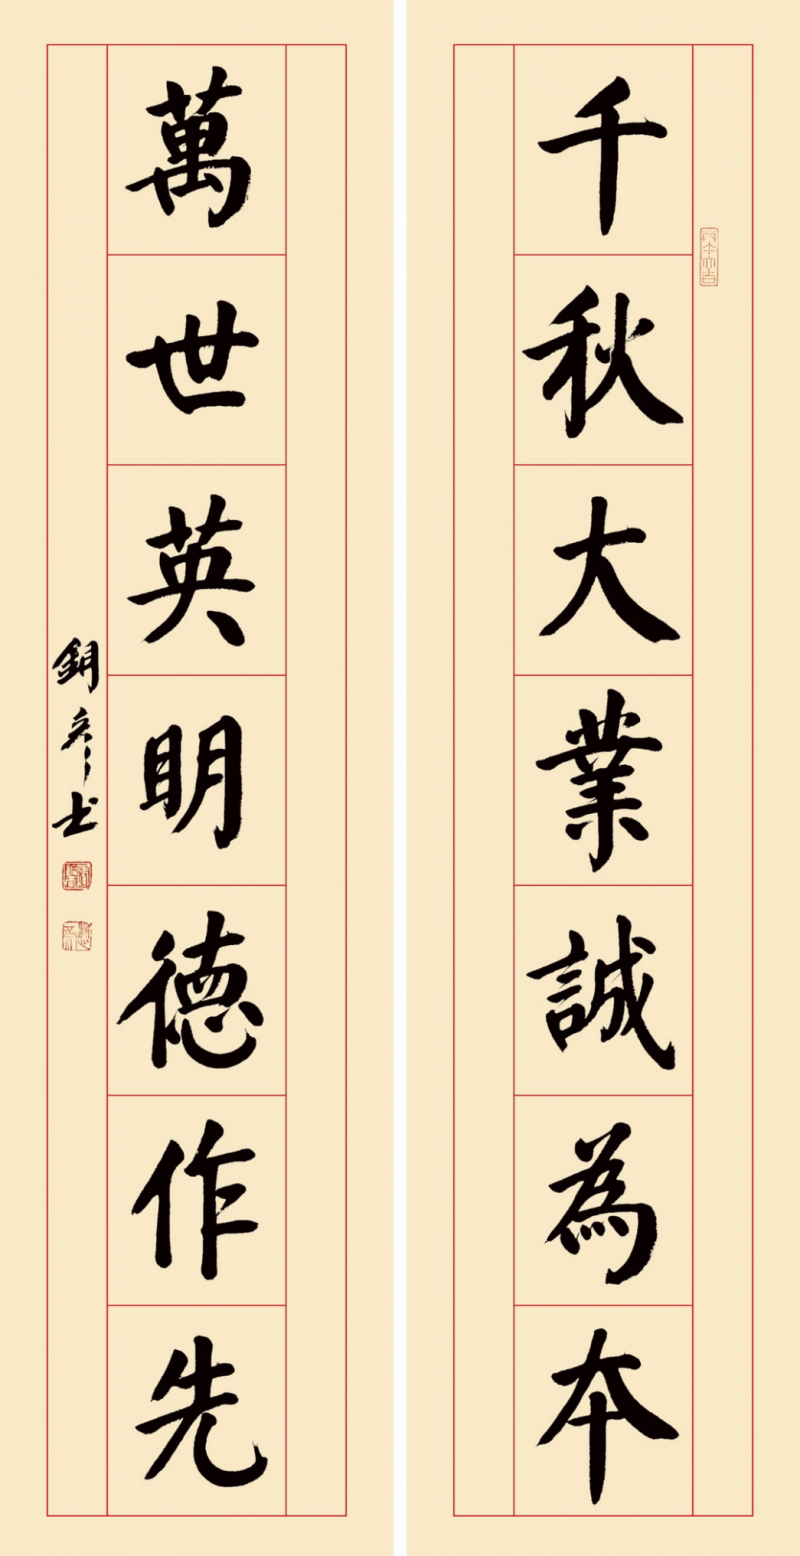 千秋大業誠為本
萬世英明德作先